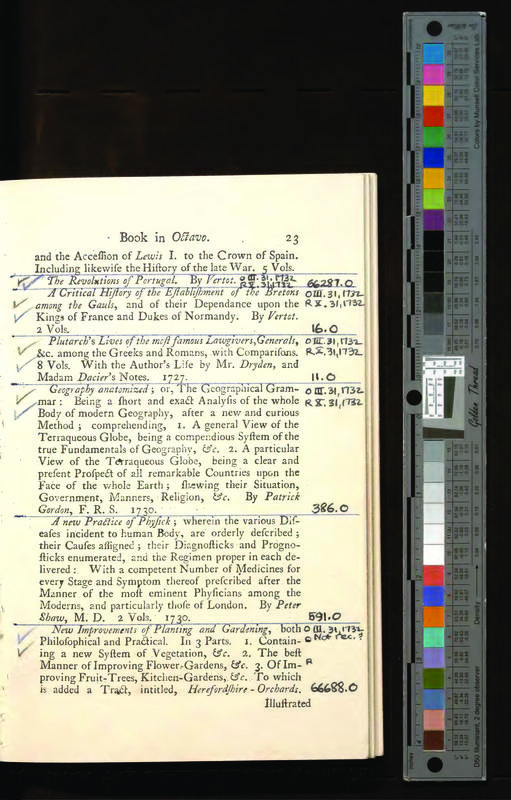 Book in Octavo. 23
and the Acceſſion of Lewis I. to the Crown of Spain.
Including likewiſe the Hiſtory of the late War. 5 Vols.
The Revolutions of Portugal. By Vertot. O III. 31, 1732
R X. 31, 1732 66287.0
A Critical Hiſtory of the Eſtabliſhment of the Bretons O III. 31, 1732
among the Gauls, and of their Dependance upon the R X. 31, 1732
Kings of France and Dukes of Normandy. By Vertot.
2 Vols. 16.0
Plutarch's Lives of the moſt famous Lawgivers, Generals, O III. 31, 1732
&c. among the Greeks and Romans, with Compariſons. R X. 31, 1732
8 Vols. With the Author's Life by Mr. Dryden, and
Madam Dacier's Notes. 1727. 11.0
Geography anatomized; or, The Geographical Gram- O III. 31, 1732
mar: Being a ſhort and exact Analyſis of the whole R X. 31, 1732
Body of modern Geography, after a new and curious
Method; comprehending, 1. A general View of the
Terraqueous Globe, being a compendious Syſtem of the
true Fundamentals of Geography, &c. 2. A particular
View of the Terraqueous Globe, being a clear and
preſent Proſpect of all remarkable Countries upon the
Face of the whole Earth; ſhewing their Situation,
Government, Manners, Religion, &c. By Patrick
Gordon, F. R. S. 1730. 386.0
A new Practice of Phyſick; wherein the various Diſ-
eaſes incident to human Body, are orderly deſcribed;
their Cauſes aſſigned; their Diagnoſticks and Progno-
ſticks enumerated, and the Regimen proper in each de-
livered: With a competent Number of Medicines for
every Stage and Symptom thereof preſcribed after the
Manner of the moſt eminent Phyſicians among the
Moderns, and particularly thoſe of London. By Peter
Shaw, M. D. 2 Vols. 1730. 591.0
New Improvements of Planting and Gardening, both O III. 31, 1732
Philoſophical and Practical. In 3 Parts. 1. Contain- Not rec.?
ing a new Syſtem of Vegetation, &c. 2. The beſt
Manner of Improving Flower-Gardens, &c. 3. Of Im- R
proving Fruit-Trees, Kitchen-Gardens, &c. To which
is added a Tract, intitled, Herefordſhire-Orchards. 66688.0
Illuſtrated
Colors by Munsell Color Services Lab
Golden Thread
Density
D50 Illuminant, 2 degree observer